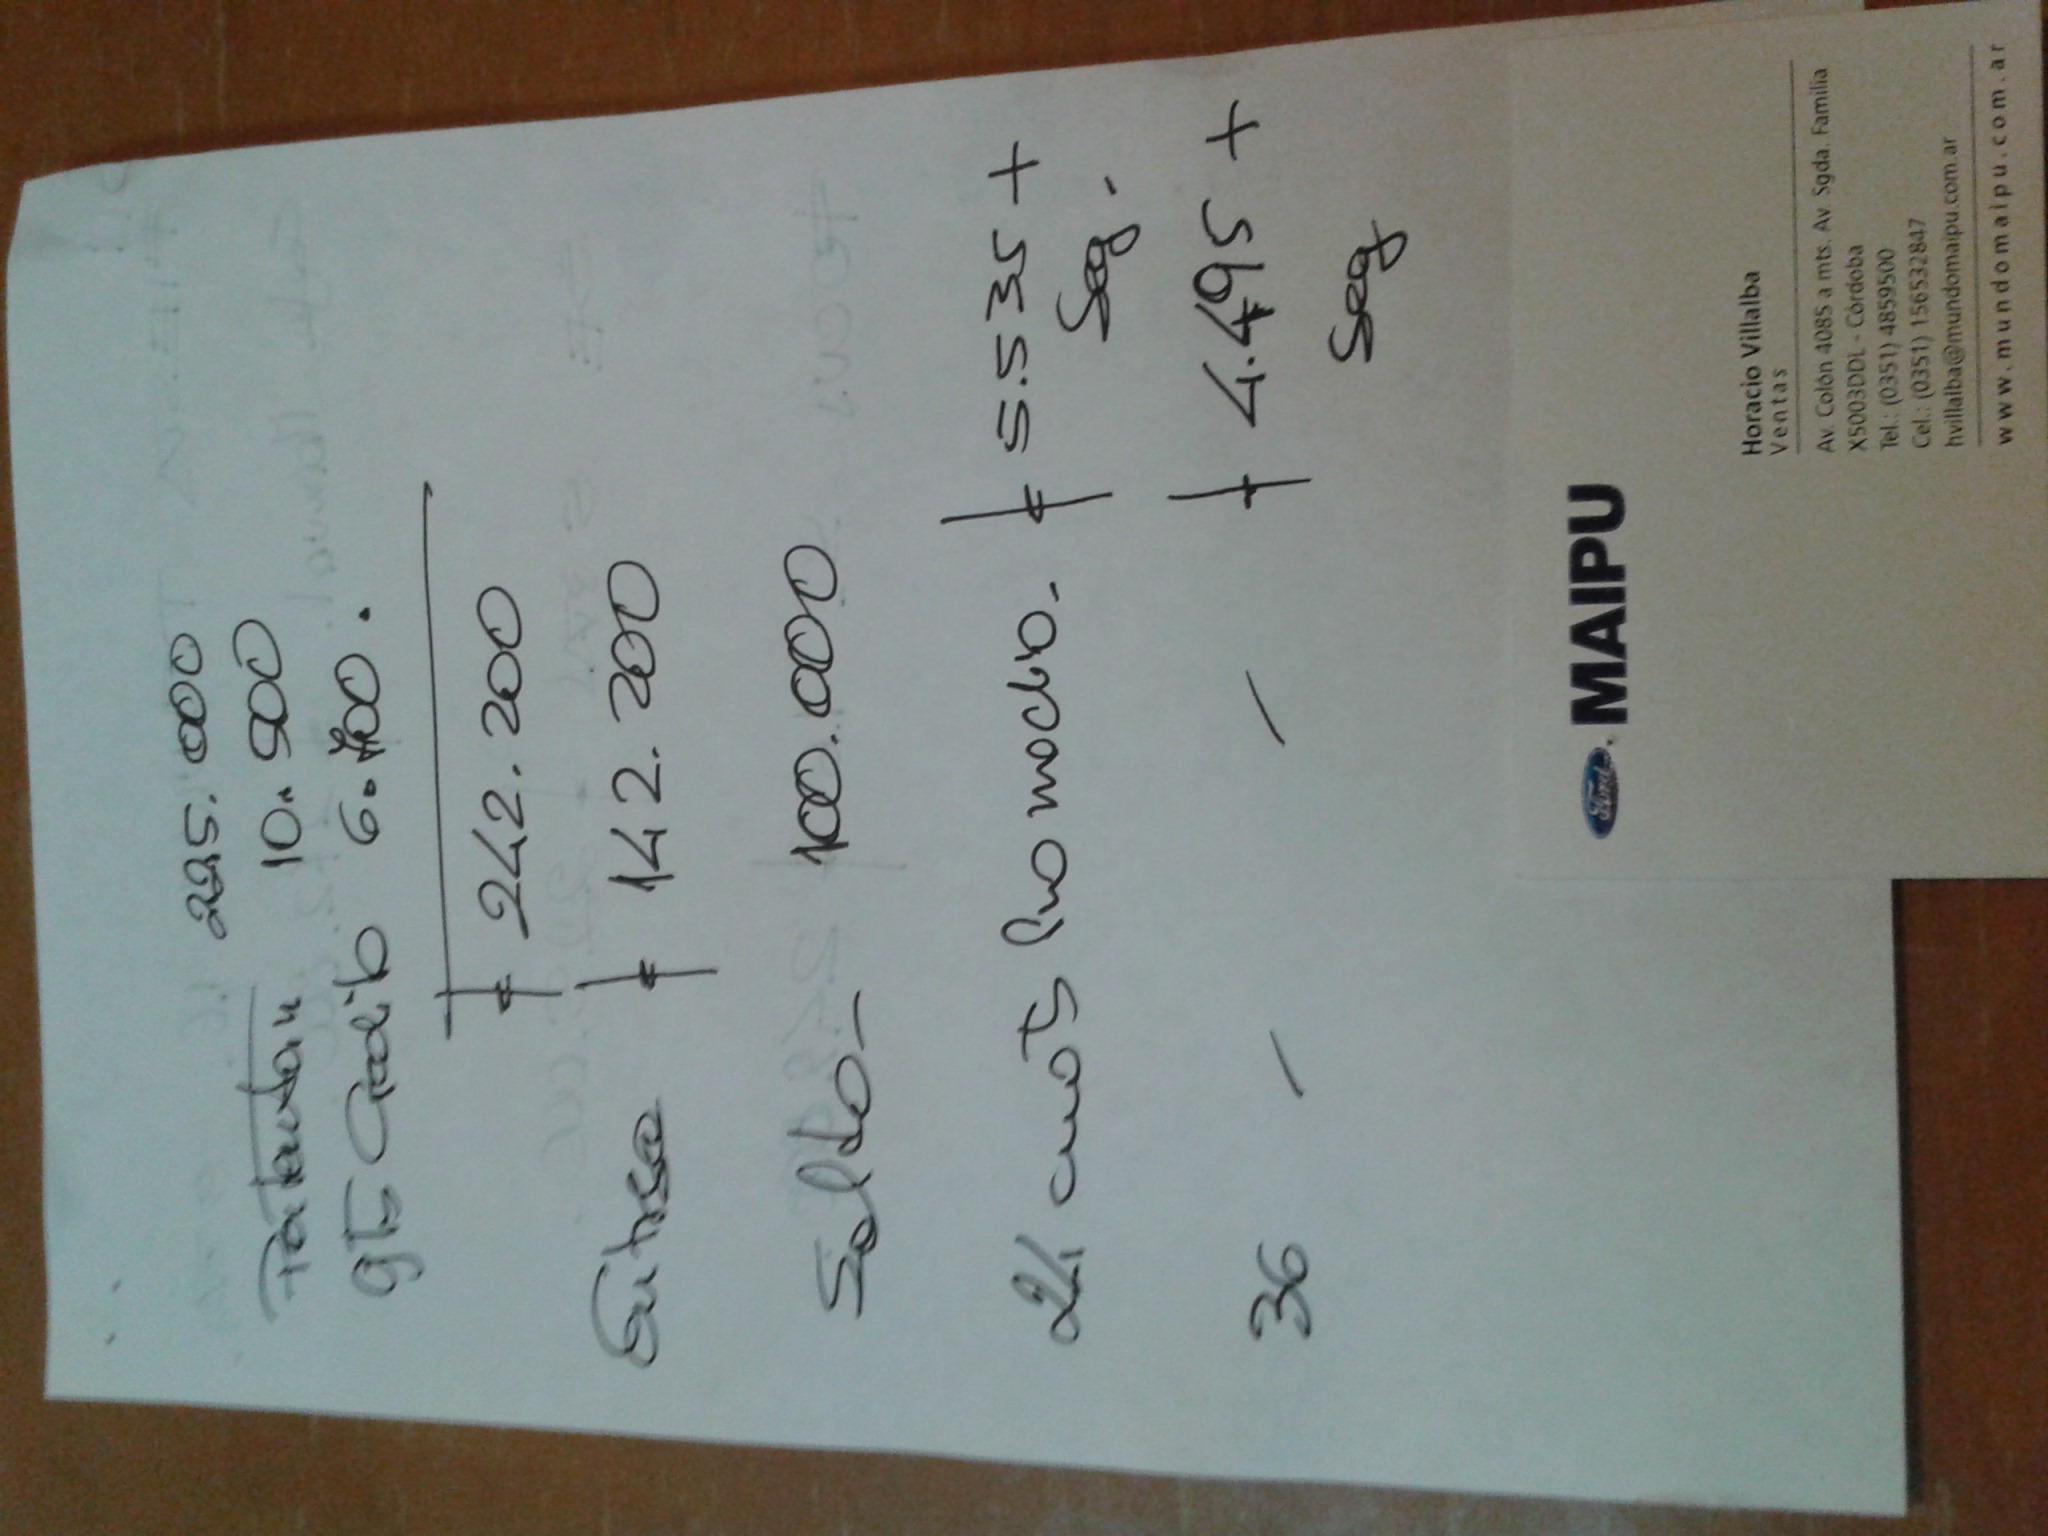 225.000
Patentam 10.500
gts Credito 6.700.
$ 242.200
Entrega $ 142.200
Saldo- 100.000
24 cuots Promedio- $ 5.535 +
Seg.
36 - - $ 4.495 +
Seg
Ford MAIPU
Horacio Villalba
Ventas
Av. Colón 4085 a mts. Av. Sgda. Familia
X5003DDL - Córdoba
Tel.: (0351) 4859500
Cel.: (0351) 156532847
hvillalba@mundomaipu.com.ar
www.mundomaipu.com.ar